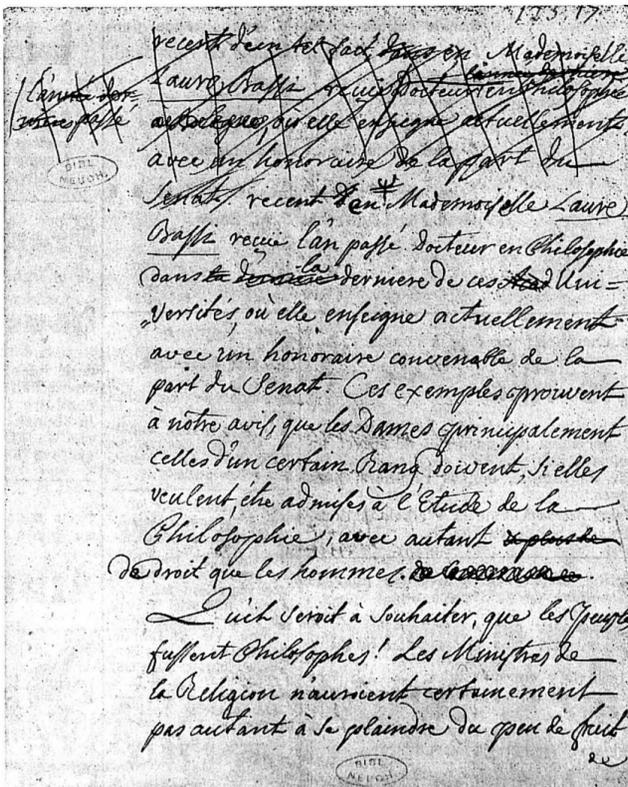 125.17
recent d'un tel fait dans en Mademoiselle
l'année derniere
Laure Bassi recue Docteur en Philosophie
(l'année der-
niere passé
a Bologne, où elle enseigne actuellement
avec un honoraire de la part du
BIBL
NEUCH.
Senat. recent d' en Mademoiselle Laure
Bassi recue l'an passé Docteur en Philosophie
dans la derniere la derniere de ces Acad Uni=
„versités, où elle enseigne actuellement
avec un honoraire convenable de la
part du Senat. Ces exemples prouvent
à nôtre avis, que les Dames principalement
celles d'un certain Rang doivent, si elles
veulent, être admises à l'Etude de la
Philosophie, avec autant & plus de
de droit que les hommes.
Qu'il seroit à souhaiter, que les Peuples
fussent Philosophes! Les Ministres de
la Religion n'auroient certainement
pas autant à se plaindre du peu de fruit
de
BIBL
NEUCH.